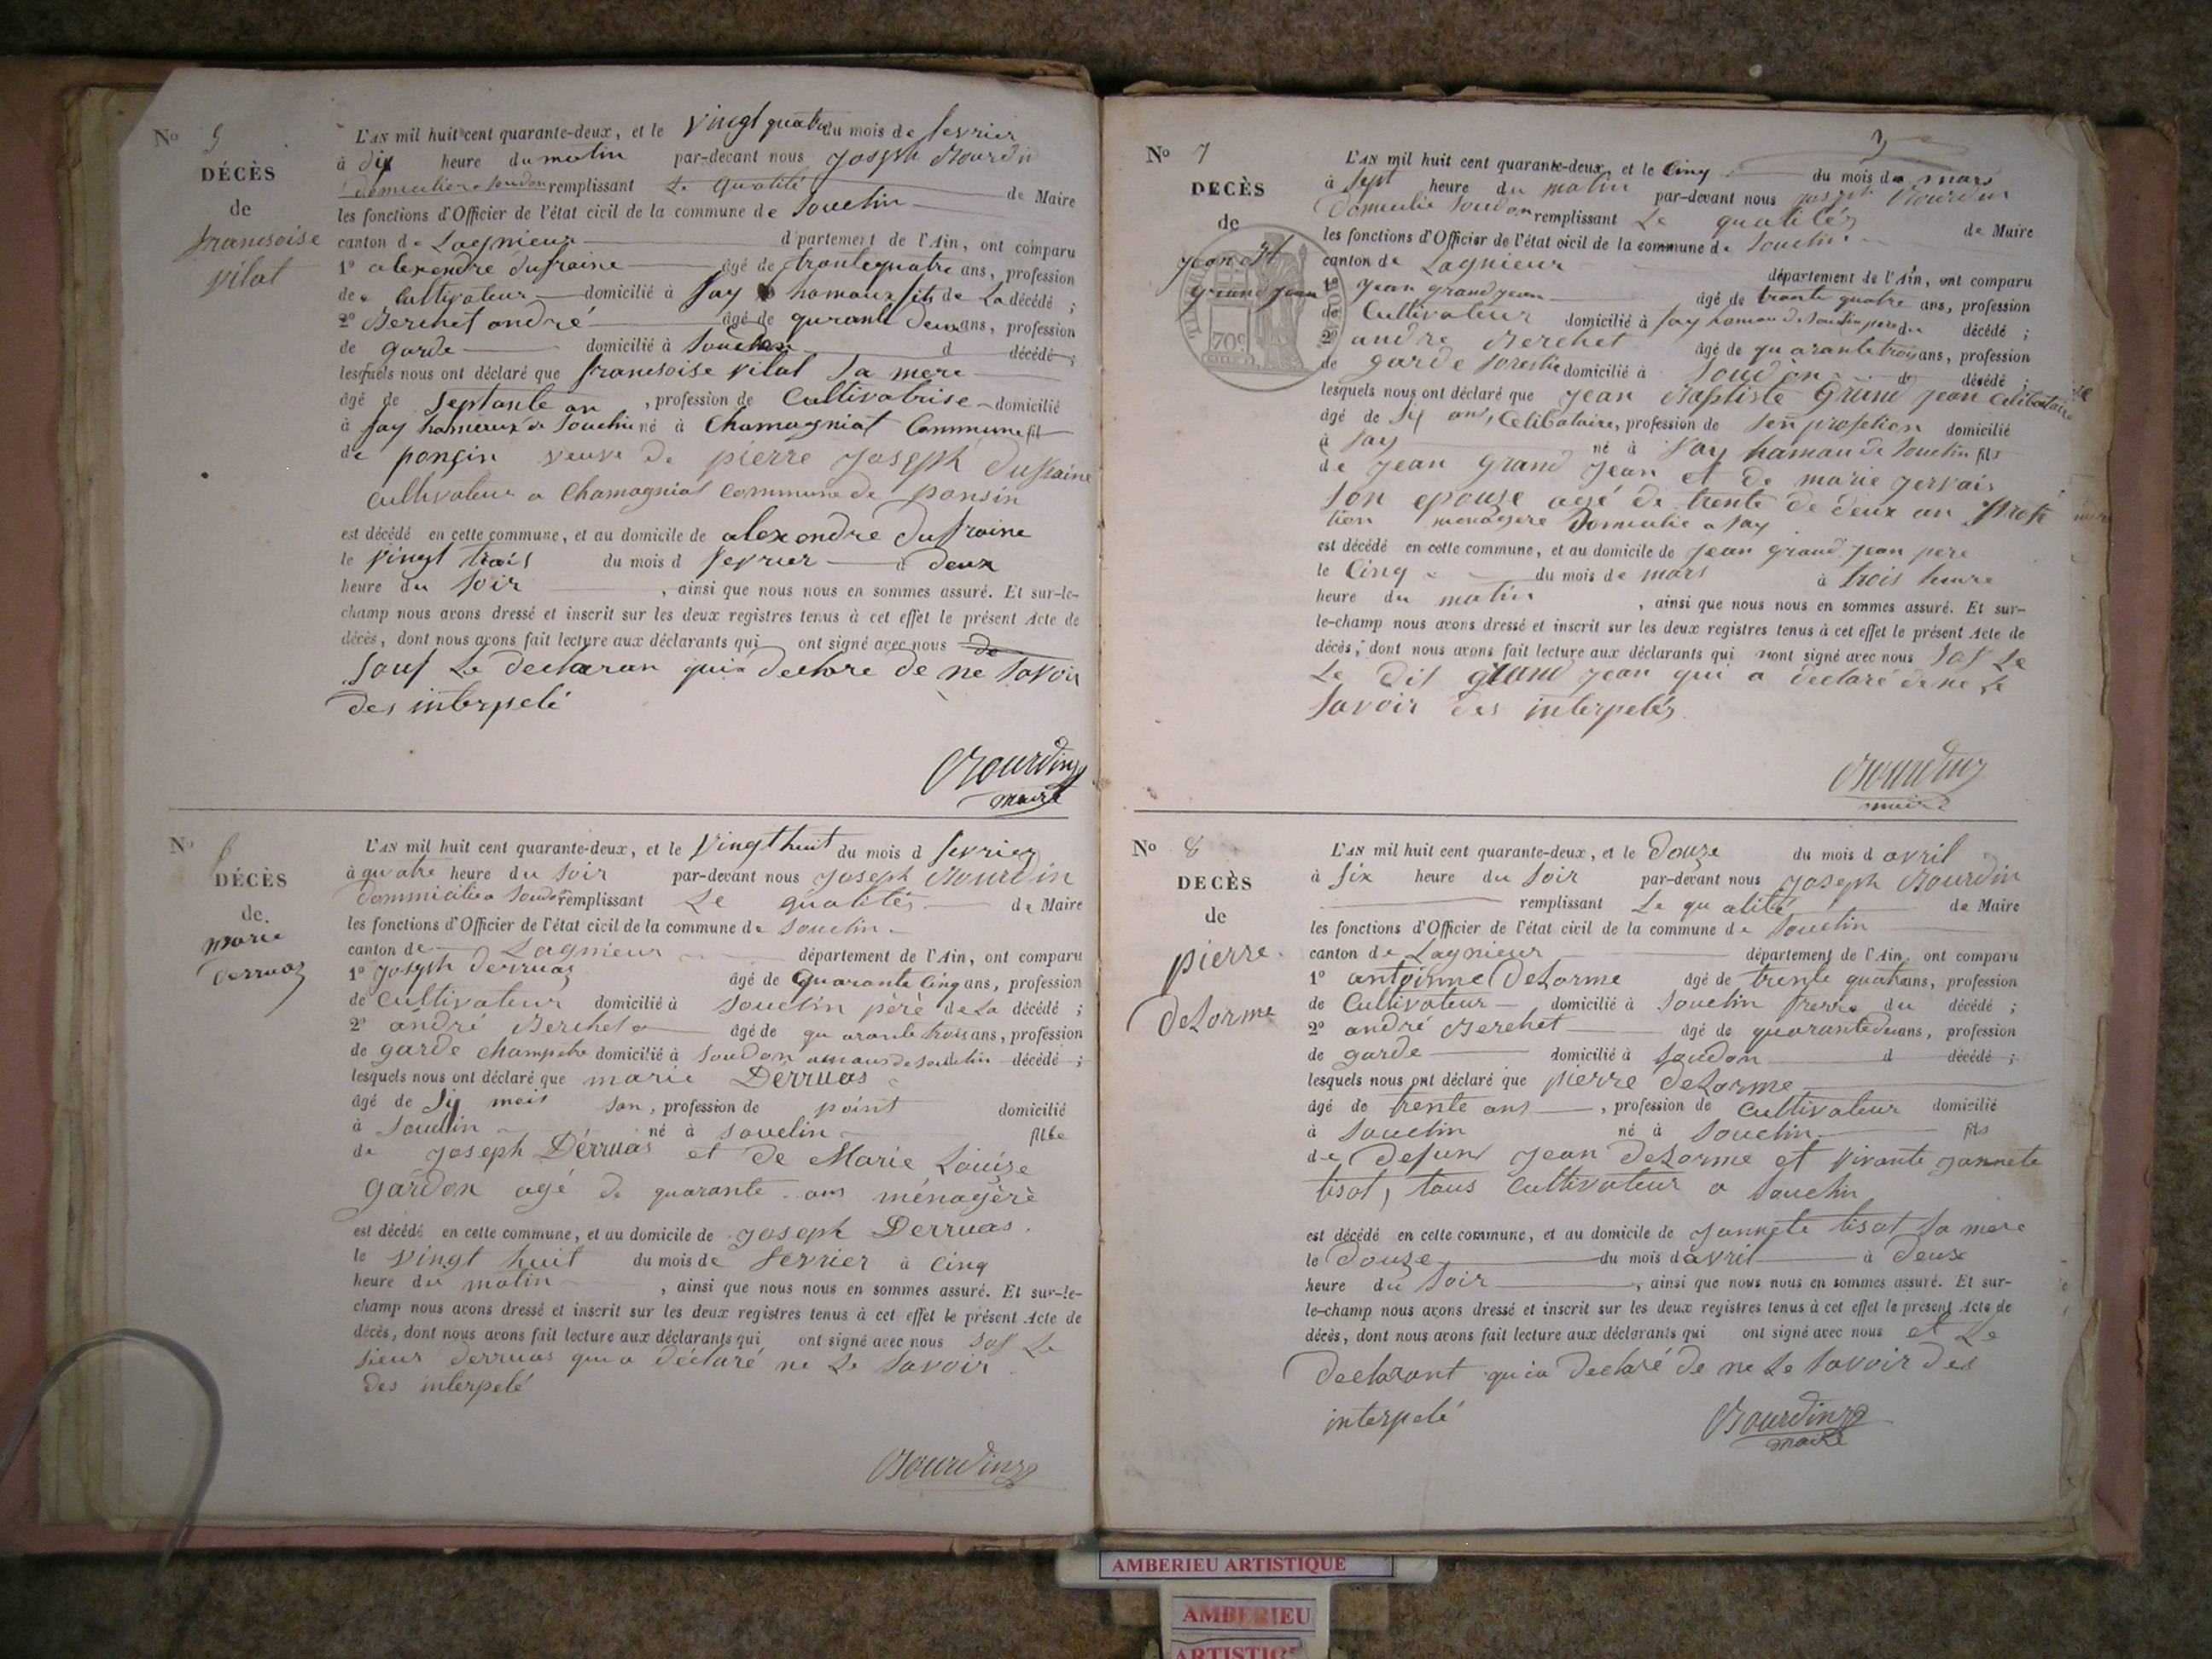 No 5
DÉCÈS
de
francsoise
vilat
L'AN mil huit cent quarante-deux, et le vingt quatre du mois de fevrier
à dix heure du matin par-devant nous Joseph Bourdin
domicilier a Soudon remplissant Le qualité de Maire
les fonctions d'Officier de l'état civil de la commune de Souclin
canton de Lagnieux département de l'Ain, ont comparu
1° alexendre dufraine âgé de trante quatre ans, profession
de cultivateur domicilié à Say hamaux fils de La décédé ;
2° Berchet andré âgé de qurante deux ans, profession
de garde domicilié à Soudon d décédé ;
lesquels nous ont déclaré que francsoise vilat Sa mere
âgé de septante an , profession de Cultivatrise domicilié
à Say hameaux de Souclin né à Chamagniat Commune fil
de ponçin veuve de pierre Joseph dufraine
cultivateur a Chamagniat commune de ponsin
est décédé en cette commune, et au domicile de alexandre dufraine
le vingt trois du mois d fevrier à deux
heure du Soir , ainsi que nous nous en sommes assuré. Et sur-le-
champ nous avons dressé et inscrit sur les deux registres tenus à cet effet le présent Acte de
décès, dont nous avons fait lecture aux déclarants qui ont signé avec nous de
Souf Le declaran qui a declare de ne Savoir
des interpelé
Bourdin
maire
No 6
DÉCÈS
de
marie
derruaz
L'AN mil huit cent quarante-deux, et le vingt huit du mois d fevrier
à quatre heure du Soir par-devant nous Joseph Bourdin
dommicilie a Soudon remplissant Le qualités de Maire
les fonctions d'Officier de l'état civil de la commune de Souclin
canton de Lagnieux département de l'Ain, ont comparu
1° Joseph derruaz âgé de quarante Cinq ans, profession
de cultivateur domicilié à Souclin pèrè de La décédé ;
2° andré Berchet âgé de quarante trois ans, profession
de garde champetre domicilié à Soudon amaux de Souclin décédé ;
lesquels nous ont déclaré que marie Derruas
âgé de Sy mois San , profession de point domicilié
à Souclin né à Souclin fille
de Joseph Dérruas et de Marie Louise
Gardon agé de quarante ans ménagèrè
est décédé en cette commune, et au domicile de Joseph Derruas
le vingt huit du mois de fevrier à Cinq
heure du matin , ainsi que nous nous en sommes assuré. Et sur-le-
champ nous avons dressé et inscrit sur les deux registres tenus à cet effet le présent Acte de
décès, dont nous avons fait lecture aux déclarants qui ont signé avec nous Saf Le
Sieur derruas qui a déclaré ne Le Savoir
des interpelé
Bourdin
3
No 7
DECÈS
de
Jean Bt
grand Jean
70c
L'AN mil huit cent quarante-deux, et le Cinq du mois de mars
à Sept heure du matin par-devant nous Joseph Bourdin
Domicilie Soudon remplissant Le qualités de Maire
les fonctions d'Officier de l'état civil de la commune de Souclin
canton de Lagnieur département de l'Ain, ont comparu
1° Jean grand Jean âgé de trante quatre ans, profession
de Cultivateur domicilié à Say hamau de Souclin pere du décédé ;
2° andre Berchet âgé de quarante trois ans, profession
de garde forestie domicilié à Soudon de décédé ;
lesquels nous ont déclaré que Jean Baptiste Grand Jean Celibataire
âgé de Sy ans, Celibataire, profession de Sen profetion domicilié
à Say né à Say hamau de Souclin fils
de Jean Grand Jean et de marie Jervais
Son epouse agé de trente de deux an profe
tion menagere Domicilie a Say
est décédé en cette commune, et au domicile de Jean grand Jean pere
le Cinq du mois de mars à trois heure
heure du matin , ainsi que nous nous en sommes assuré. Et sur-
le-champ nous avons dressé et inscrit sur les deux registres tenus à cet effet le présent Acte de
décès, dont nous avons fait lecture aux déclarants qui nont signé avec nous Saf Le
Le dit grand Jean qui a déclaré de ne Le
Savoir des interpelés
Bourdin
maire
No 8
DECÈS
de
pierre
deLorme
L'AN mil huit cent quarante-deux, et le douze du mois d avril
à Six heure du Soir par-devant nous Joseph Bourdin
remplissant Le qualité de Maire
les fonctions d'Officier de l'état civil de la commune de Souclin
canton de Lagnieur département de l'Ain, ont comparu
1° antoinne deLorme âgé de trente quatre ans, profession
de Cultivateur domicilié à Souclin frerre du décédé ;
2° andré Berchet âgé de quarante deu ans, profession
de garde domicilié à Soudon d décédé ;
lesquels nous ont déclaré que pierre deLorme
âgé de trente ans , profession de cultivateur domicilié
à Souclin né à Souclin fils
de defunt Jean deLorme et vivante Jannete
tisot, tous Cultivateur a Souclin
est décédé en cette commune, et au domicile de Jannete tisot Sa mere
le douze du mois d avril à deux
heure du Soir , ainsi que nous nous en sommes assuré. Et sur-
le-champ nous avons dressé et inscrit sur les deux registres tenus à cet effet le présent Acte de
décès, dont nous avons fait lecture aux déclarants qui ont signé avec nous et Le
declarant qui a declaré de ne Le Savoir des
interpelé
Bourdin
maire
AMBERIEU ARTISTIQUE
AMBERIEU
ARTISTIQUE